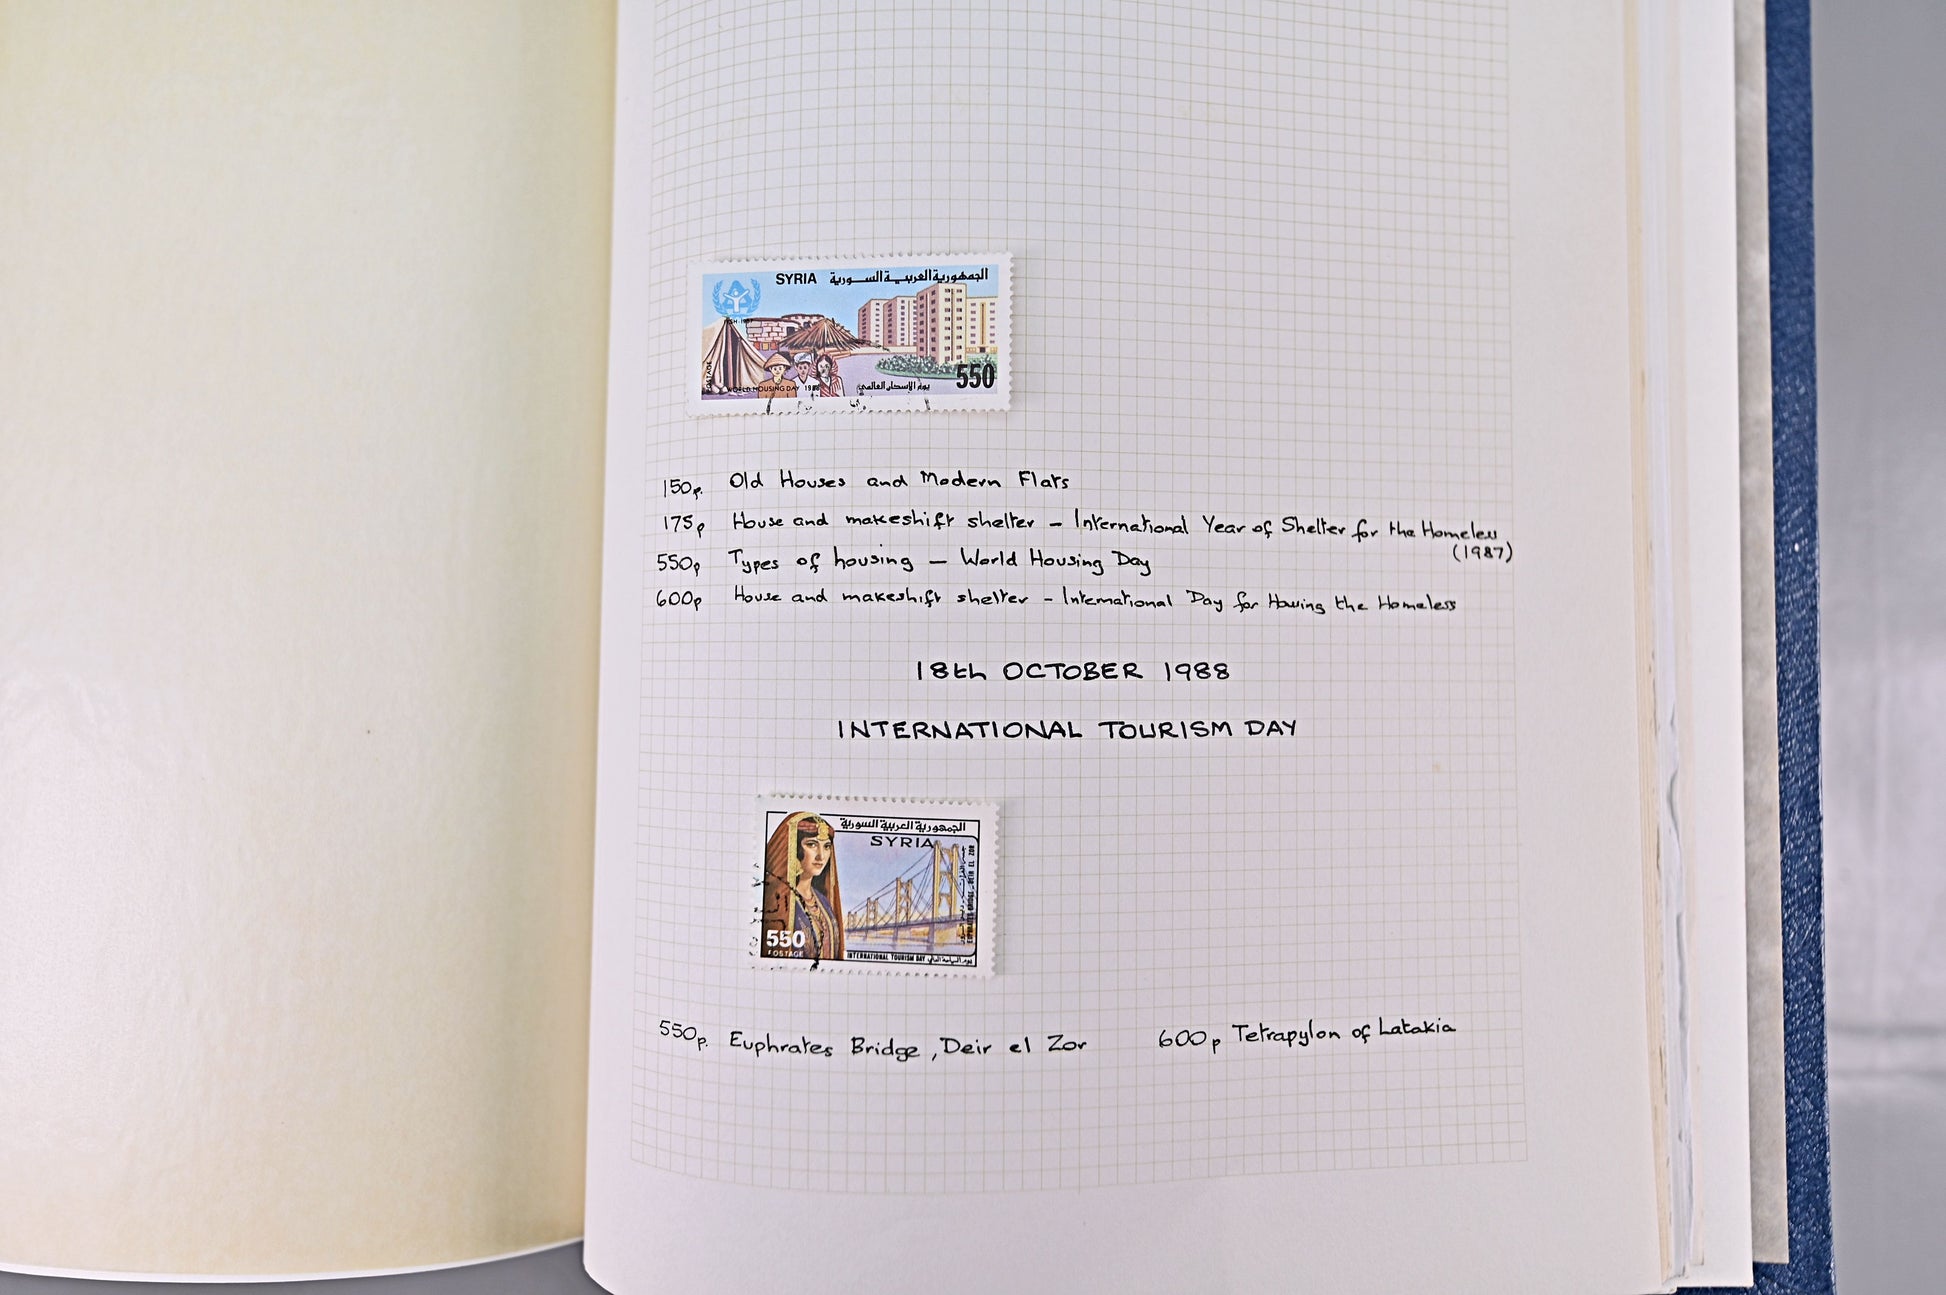 SYRIA الجمهورية العربية السورية
WORLD HOUSING DAY 1988 يوم الإسكان العالمي
POSTAGE
550
150p. Old Houses and Modern Flats
175p House and makeshift shelter – International Year of Shelter for the Homeless
(1987)
550p Types of housing – World Housing Day
600p House and makeshift shelter - International Day for Housing the Homeless
18th OCTOBER 1988
INTERNATIONAL TOURISM DAY
الجمهورية العربية السورية
SYRIA
EUPHRATES BRIDGE - DEIR EL ZOR
550
POSTAGE
INTERNATIONAL TOURISM DAY يوم السياحة العالمي
550p. Euphrates Bridge, Deir el Zor 600p Tetrapylon of Latakia